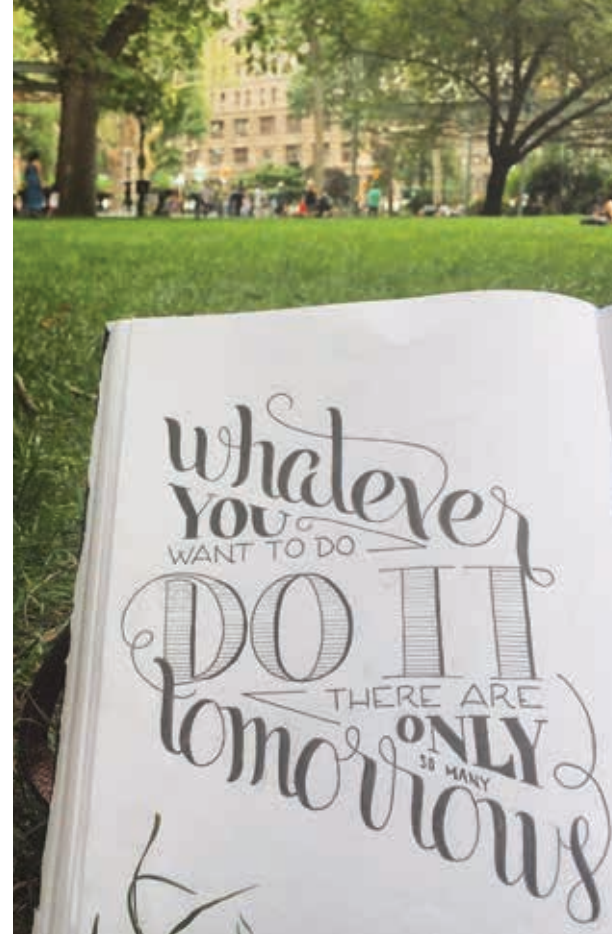 whatever
YOU
WANT TO DO
DO IT
THERE ARE
ONLY
SO MANY
tomorrows